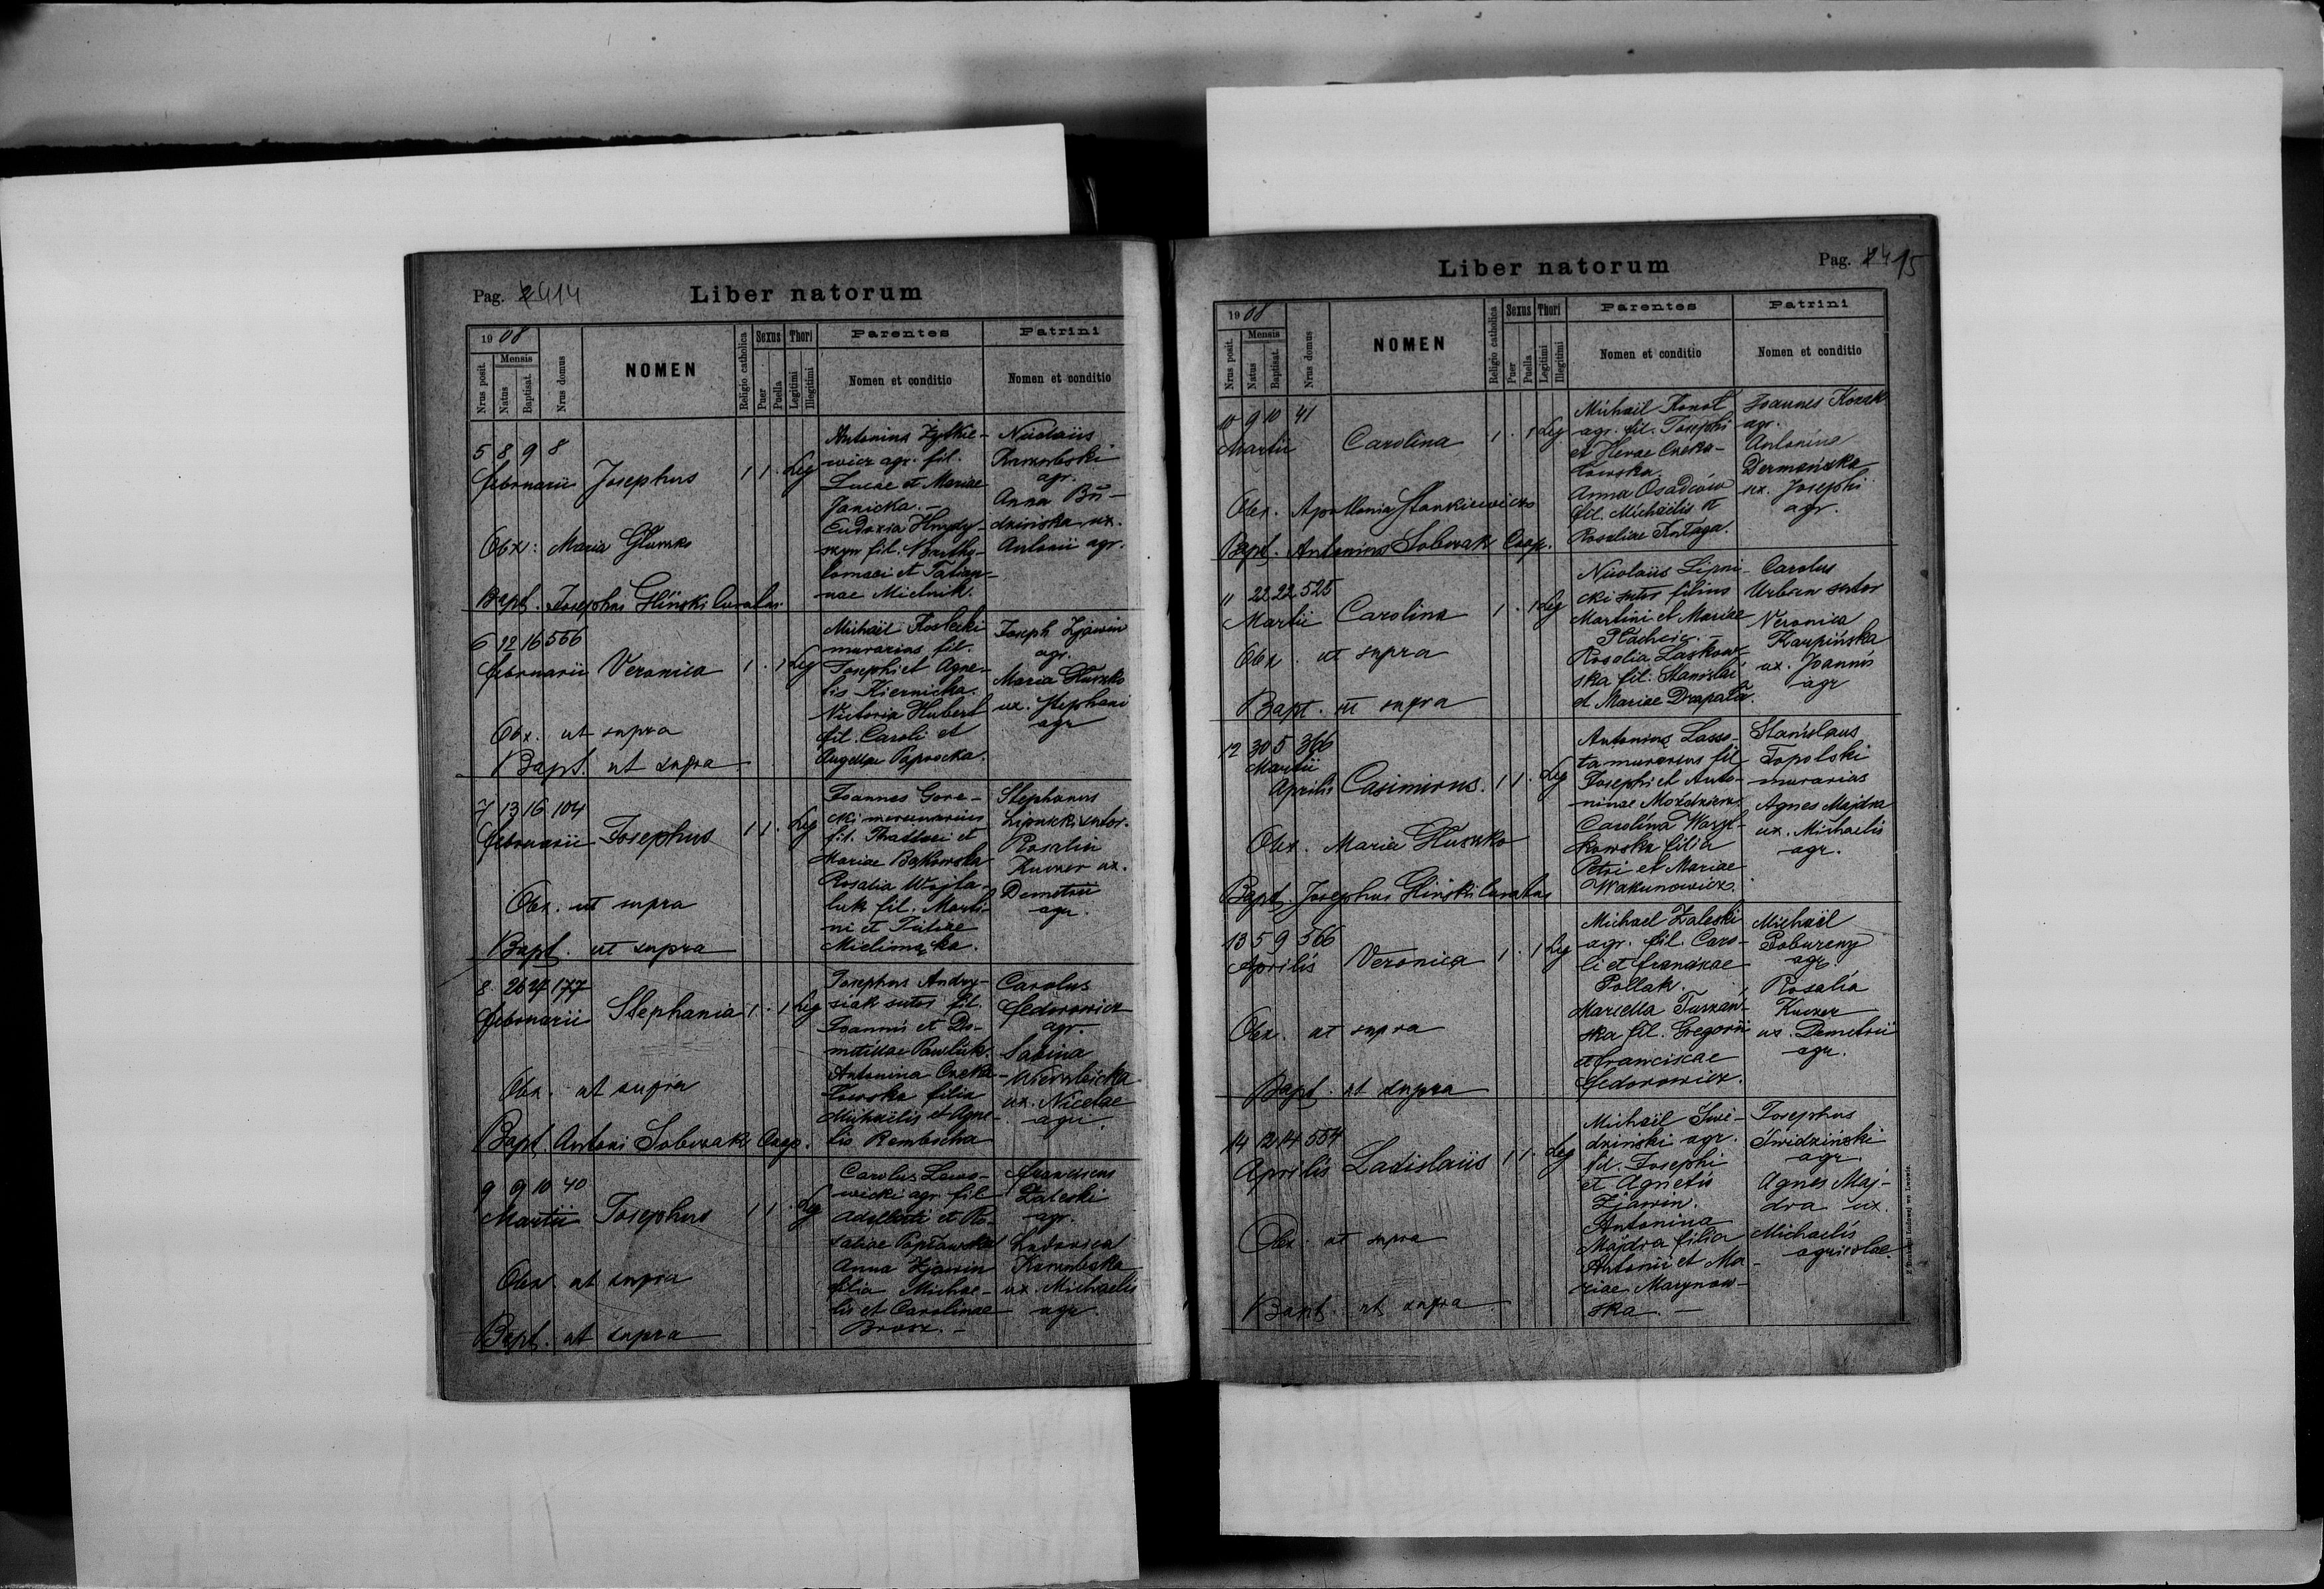 Pag. 14
Liber natorum
1908
Nrus posit.
Mensis
Natus
Baptisat.
Nrus domus
NOMEN
Religio catholica
Sexus
Puer
Puella
Thori
Legitimi
Illegitimi
Parentes
Nomen et conditio
Patrini
Nomen et conditio
5 8 9 8
februarii Josephus 1 1 . Leg
Antonius Zytkie-
wicz agr. fil.
Lucae et Mariae
Janicka. -
Eudoxia
fil. Bartho-
lomaei et Tatian-
nae Mielnik.
Nicolaus
agr.
Anna Bu-
dzińska ux.
Antonii agr.
Obx: Maria Głuszko
Bapt. Josephus Gliński Curatus.
6 12 16 566
februarii Veronica 1 . 1 Leg
Michaël Kostecki
murarius fil.
Josephi et Agne-
tis Kiernicka.
Victoria Hubert
fil. Caroli et
Angelae Paprocka.
Joseph Zjawin
agr.
Maria Głuszko
ux. Stephani
agr
Obx. ut supra
Bapt. ut supra
7 13 16 104
februarii Josephus 1 1 . Leg
Joannes Gore-
cki mercenarius
fil. Thaddaei et
Mariae Bąkowska
Rosalia Wojta-
luk fil. Marti-
ni et Juliae
Stephanus
Lipnicki sutor.
Rosalia
Kuczer ux.
Demetrii
agr.
Obx. ut supra
Bapt. ut supra
8 26 27 177
februarii Stephania 1 . 1 Leg
Josephus Andry-
siak sutor fil.
Joannis et Do-
miticae Pawluk.
Antonina Czeka-
łowska filia
Michaëlis et Agne-
tis Rembocha
Carolus
Fedorowicz
agr.
Sabina
Wierzbicka
ux. Nicetae
agr.
Obx. ut supra
Bapt. Antoni Sobczak Coop.
9 9 10 40
Martii Josephus 1 1 . Leg
Carolus Lewo-
wicki agr. fil
Adalberti et Ro-
saliae Popławska
Anna Zjawin
filia Michae-
lis et Carolinae
Brosz. -
Franciscus
Zaleski
agr.
Ludovica
ux. Michaelis
agr.
Obx. ut supra
Bapt. ut supra
Liber natorum
Pag. 15
1908
Nrus posit.
Mensis
Natus
Baptisat.
Nrus domus
NOMEN
Religio catholica
Sexus
Puer
Puella
Thori
Legitimi
Illegitimi
Parentes
Nomen et conditio
Patrini
Nomen et conditio
10 9 10 41
Martii Carolina 1 . 1 Leg
Michaël Konot
agr. fil. Josephi
et Czeka-
łowska.
Anna Osadców
fil. Michaëlis et
Rosaliae
Joannes Kozak
agr.
Antonina
Dermańska
ux. Josephi
agr.
Obx. Apollonia Stankiewicz
Bapt. Antonius Sobczak Coop.
11 22 22 525
Martii Carolina 1 . 1 Leg
Nicolaus Lipni-
cki sutor filius
Martini et Mariae
Rosalia Laskow-
ska fil. Stanislai
et Mariae Drapała.
Carolus
Urban sutor
Veronica
Karpińska
ux. Joannis
agr
Obx. ut supra
Bapt. ut supra
12 30 5 366
Martii
Aprilis Casimirus. 1 1 . Leg
Antonius Lasso-
ta murarius fil
Josephi et Anto-
ninae Moździerz.
Carolina
filia
Petri et Mariae
Wakunowicz.
Stanislaus
Topolski
murarius
Agnes Majdra
ux. Michaelis
agr.
Obx. Maria Głuszko
Bapt. Josephus Gliński Curatus
13 5 9 566
Aprilis Veronica 1 . 1 Leg
Michael Zaleski
agr. fil. Caro-
li et Franciscae
Pollak.
Marcella Turzań-
ska fil. Gregorii
et Franciscae
Fedorowicz.
Michaël
Pobureny
agr.
Rosalia
Kuczer
ux. Demetrii
agr.
Obx. ut supra
Bapt. ut supra
14 12 14 554
Aprilis Ladislaus 1 1 . Leg
Michaël Świ-
dziński agr.
fil. Josephi
et Agnetis
Zjawin.
Antonina
Majdra filia
Antonii et Ma-
riae Marynow-
ska. -
Josephus
Świdziński
agr.
Agnes Maj-
dra ux.
Michaelis
agricolae.
Obx. ut supra
Bapt. ut supra
Z Drukarni Ludowej we Lwowie.